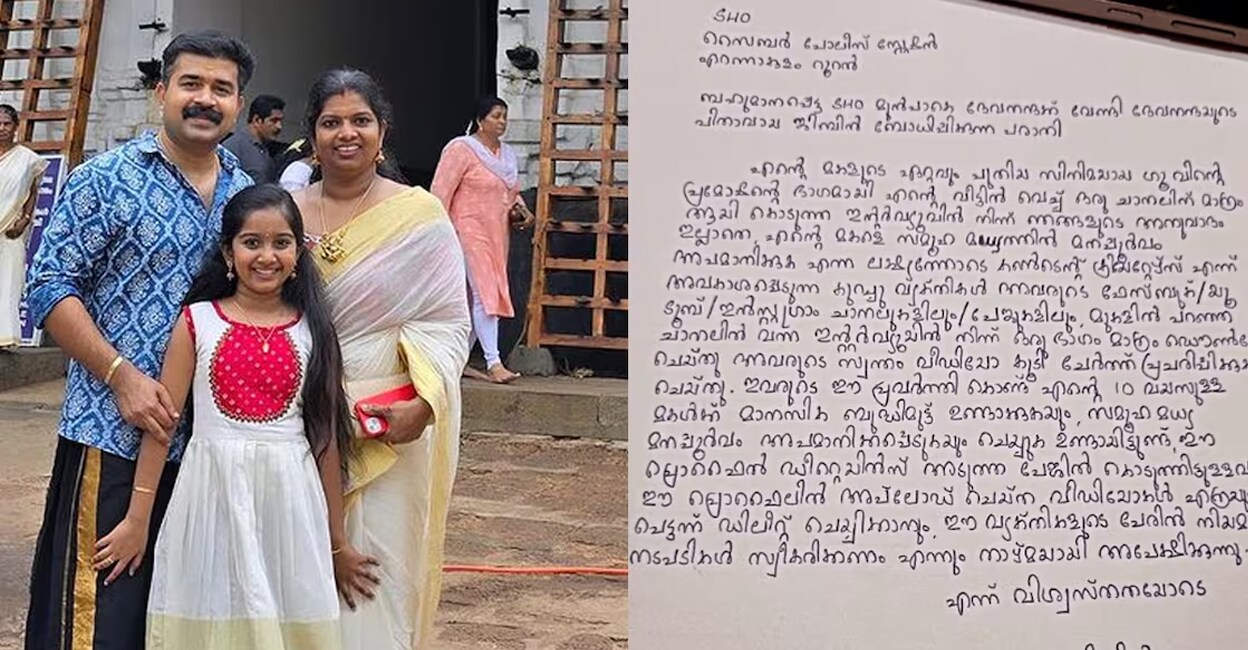 SHO
സൈബർ പോലീസ് സ്റ്റേഷൻ
എറണാകുളം റൂറൽ
ബഹുമാനപ്പെട്ട SHO മുൻപാകെ ദേവനന്ദക്ക് വേണ്ടി ദേവനന്ദയുടെ
പിതാവായ ജിബിൻ ബോധിപ്പിക്കുന്ന പരാതി
എന്റെ മകളുടെ ഏറ്റവും പുതിയ സിനിമയായ ഗു വിന്റെ
പ്രമോഷന്റെ ഭാഗമായി എന്റെ വീട്ടിൽ വെച്ച് ഒരു ചാനലിന് മാത്രം
ആയി കൊടുത്ത ഇന്റർവ്യൂവിൽ നിന്ന് ഞങ്ങളുടെ അനുവാദം
ഇല്ലാതെ, എന്റെ മകളെ സമൂഹ മധ്യത്തിൽ മനപൂർവം
അപമാനിക്കുക എന്ന ലക്ഷ്യത്തോടെ കണ്ടെന്റ് ക്രിയേറ്റേഴ്സ് എന്ന്
അവകാശപ്പെടുന്ന കുറച്ചു വ്യക്തികൾ അവരുടെ ഫേസ്ബുക്/യൂ
ട്യൂബ്/ഇൻസ്റ്റഗ്രാം ചാനലുകളിലും/പേജുകളിലും, മുകളിൽ പറഞ്ഞ
ചാനലിൽ വന്ന ഇന്റർവ്യൂയിൽ നിന്ന് ഒരു ഭാഗം മാത്രം ഡൌൺലോ
ചെയ്തു അവരുടെ സ്വന്തം വീഡിയോ കൂടി ചേർത്ത് പ്രചരിപ്പിക്കുക
ചെയ്തു. ഇവരുടെ ഈ പ്രവർത്തി കൊണ്ട് എന്റെ 10 വയസുള്ള
മകൾക്ക് മാനസിക ബുദ്ധിമുട്ട് ഉണ്ടാക്കുകയും, സമൂഹ മധ്യ
മനപൂർവം അപമാനിക്കപ്പെടുകയും ചെയ്യുക ഉണ്ടായിട്ടുണ്ട്. ഈ
പ്രൊഫൈൽ ഡീറ്റെയിൽസ് അടുത്ത പേജിൽ കൊടുത്തിട്ടുള്ളവ
ഈ പ്രൊഫൈലിൽ അപ്‌ലോഡ് ചെയ്ത വീഡിയോകൾ എത്രയും
പെട്ടന്ന് ഡിലീറ്റ് ചെയ്യിക്കാനും, ഈ വ്യക്തികളുടെ പേരിൽ നിയമ
നടപടികൾ സ്വീകരിക്കണം എന്നും താഴ്മയായി അപേക്ഷിക്കുന്നു.
എന്ന് വിശ്വസ്തതയോടെ